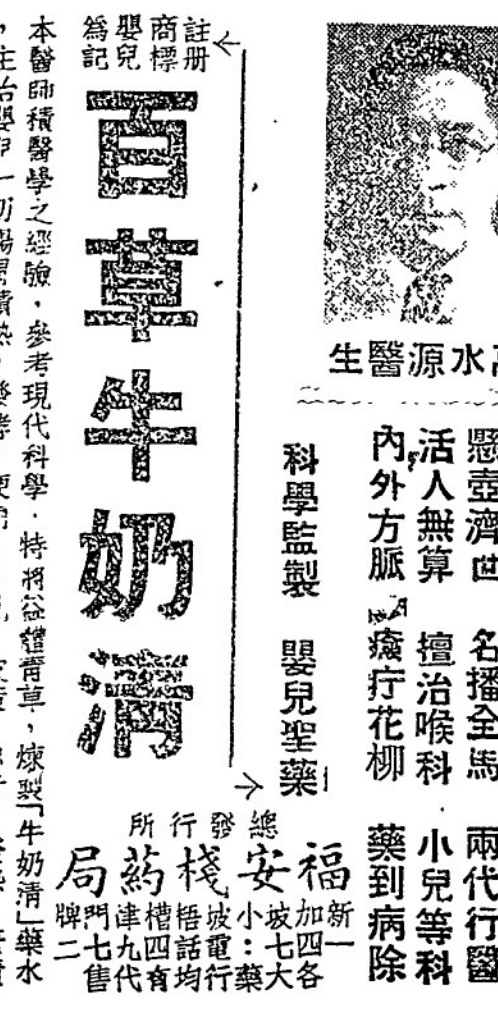 水源醫生
懸壺濟世 名播全馬 兩代行醫
活人無算 擅治喉科 小兒等科
內外方脈 癀疔花柳 藥到病除
科學監製 嬰兒聖藥
註册
商標
嬰兒
為記
百草牛奶清
總發行所
福安棧葯局
新加坡小坡梧槽津門牌
一四七：電話四九七二
各大藥行均有代售
本醫師積醫學之經驗，參考現代科學．特將益體青草，煉製「牛奶清」藥水